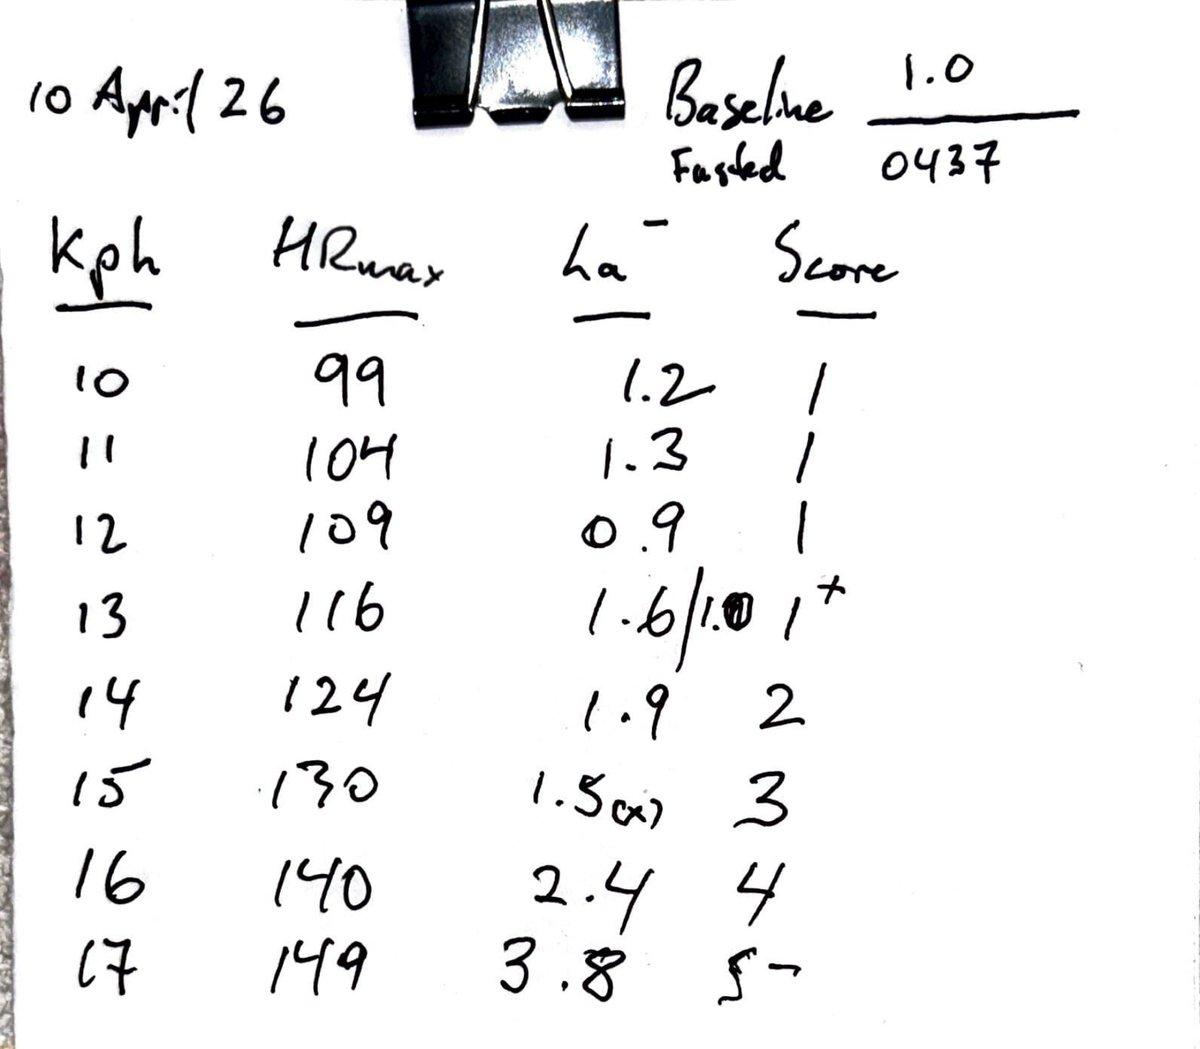 10 April 26
Baseline 1.0
Fasted 0437
Kph HRmax La⁻ Score
10 99 1.2 1
11 104 1.3 1
12 109 0.9 1
13 116 1.6/1.0 1+
14 124 1.9 2
15 130 1.5(x) 3
16 140 2.4 4
17 149 3.8 5-